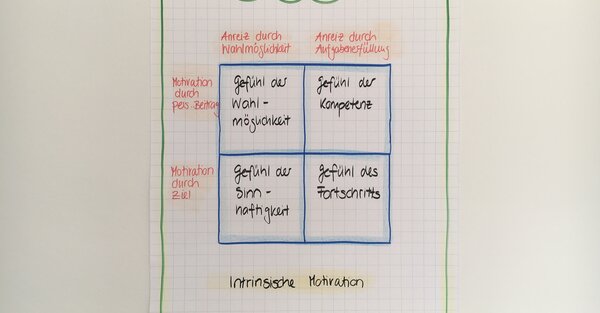 Anreiz durch
Wahlmöglichkeit
Anreiz durch
Aufgabenerfüllung
Motivation
durch
Pers. Beitrag
Gefühl der
Wahl-
möglichkeit
Gefühl der
Kompetenz
Motivation
durch
Ziel
Gefühl der
Sinn-
haftigkeit
Gefühl des
Fortschritts
Intrinsische Motivation